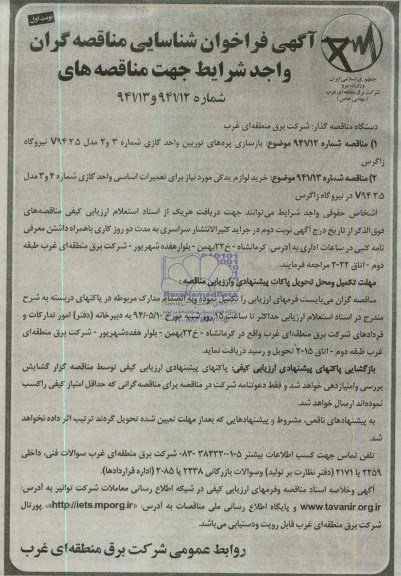 نوبت اول
آگهی فراخوان شناسایی مناقصه گران
واجد شرایط جهت مناقصه های
شماره ۹۴۱/۱۲ و ۹۴۱/۱۳
جمهوری اسلامی ایران
وزارت نیرو
شرکت برق منطقه ای غرب
(سهامی خاص)
دستگاه مناقصه گذار: شرکت برق منطقه‌ای غرب
۱) مناقصه شماره ۹۴۱/۱۲ موضوع: بازسازی پره‌های توربین واحد گازی شماره ۳ و ۲ مدل V۹۴.۲.۵ نیروگاه
زاگرس
۲) مناقصه شماره ۹۴۱/۱۳ موضوع: خرید لوازم یدکی مورد نیاز برای تعمیرات اساسی واحد گازی شماره ۴ و ۳ مدل
V۹۴.۲.۵ در نیروگاه زاگرس
اشخاص حقوقی واجد شرایط می‌توانند جهت دریافت هریک از اسناد استعلام ارزیابی کیفی مناقصه‌های
فوق‌الذکر از تاریخ درج آگهی نوبت دوم در جراید کثیرالانتشار سراسری به مدت دو روز کاری باهمراه داشتن معرفی
نامه کتبی در ساعات اداری به آدرس: کرمانشاه - خ ۲۲ بهمن - بلوار هفده شهریور - شرکت برق منطقه‌ای غرب طبقه
دوم - اتاق ۲۰۲۲ مراجعه فرمایند.
مهلت تکمیل ومحل تحویل پاکات پیشنهادی وارزیابی مناقصه:
مناقصه گران می‌بایست فرمهای ارزیابی را تکمیل نموده وبه انضمام مدارک مربوطه در پاکتهای دربسته به شرح
مندرج در اسناد استعلام ارزیابی حداکثر تا ساعت ۱۵ روز شنبه مورخ ۹۴/۰۵/۱۰ به دبیرخانه (دفتر) امور تدارکات و
قراردادهای شرکت برق منطقه‌ای غرب واقع در کرمانشاه - خ ۲۲ بهمن - بلوار هفده‌شهریور - شرکت برق منطقه‌ای
غرب طبقه دوم - اتاق ۲۰۱۵ تحویل و رسید دریافت نماید.
بازگشایی پاکتهای پیشنهادی ارزیابی کیفی: پاکتهای پیشنهادی ارزیابی کیفی توسط مناقصه گزار گشایش
بررسی وامتیازدهی خواهد شد و فقط دعوتنامه شرکت در مناقصه برای مناقصه گرانی که حداقل امتیاز کیفی راکسب
نموده‌اند ارسال خواهد شد.
به پیشنهادهای ناقص، مشروط و پیشنهادهایی که بعداز مهلت تعیین شده تحویل گردند ترتیب اثر داده نخواهد
شد.
تلفن تماس جهت کسب اطلاعات بیشتر ۵-۳۸۲۲۲۰۰۱-۰۸۳ شرکت برق منطقه‌ای غرب سوالات فنی، داخلی
۲۲۵۹ یا ۲۱۷۱ (دفتر نظارت بر تولید) وسوالات بازرگانی ۲۲۳۸ یا ۲۰۸۵ (اداره قراردادها).
آگهی وخلاصه اسناد مناقصه وفرمهای ارزیابی کیفی در شبکه اطلاع رسانی معاملات شرکت توانیر به آدرس:
www.tavanir.org.ir و پایگاه اطلاع رسانی ملی مناقصات به آدرس: «http://iets.mporg.ir»، پورتال
شرکت برق منطقه‌ای غرب قابل رویت ودستیابی می‌باشد.
روابط عمومی شرکت برق منطقه‌ای غرب